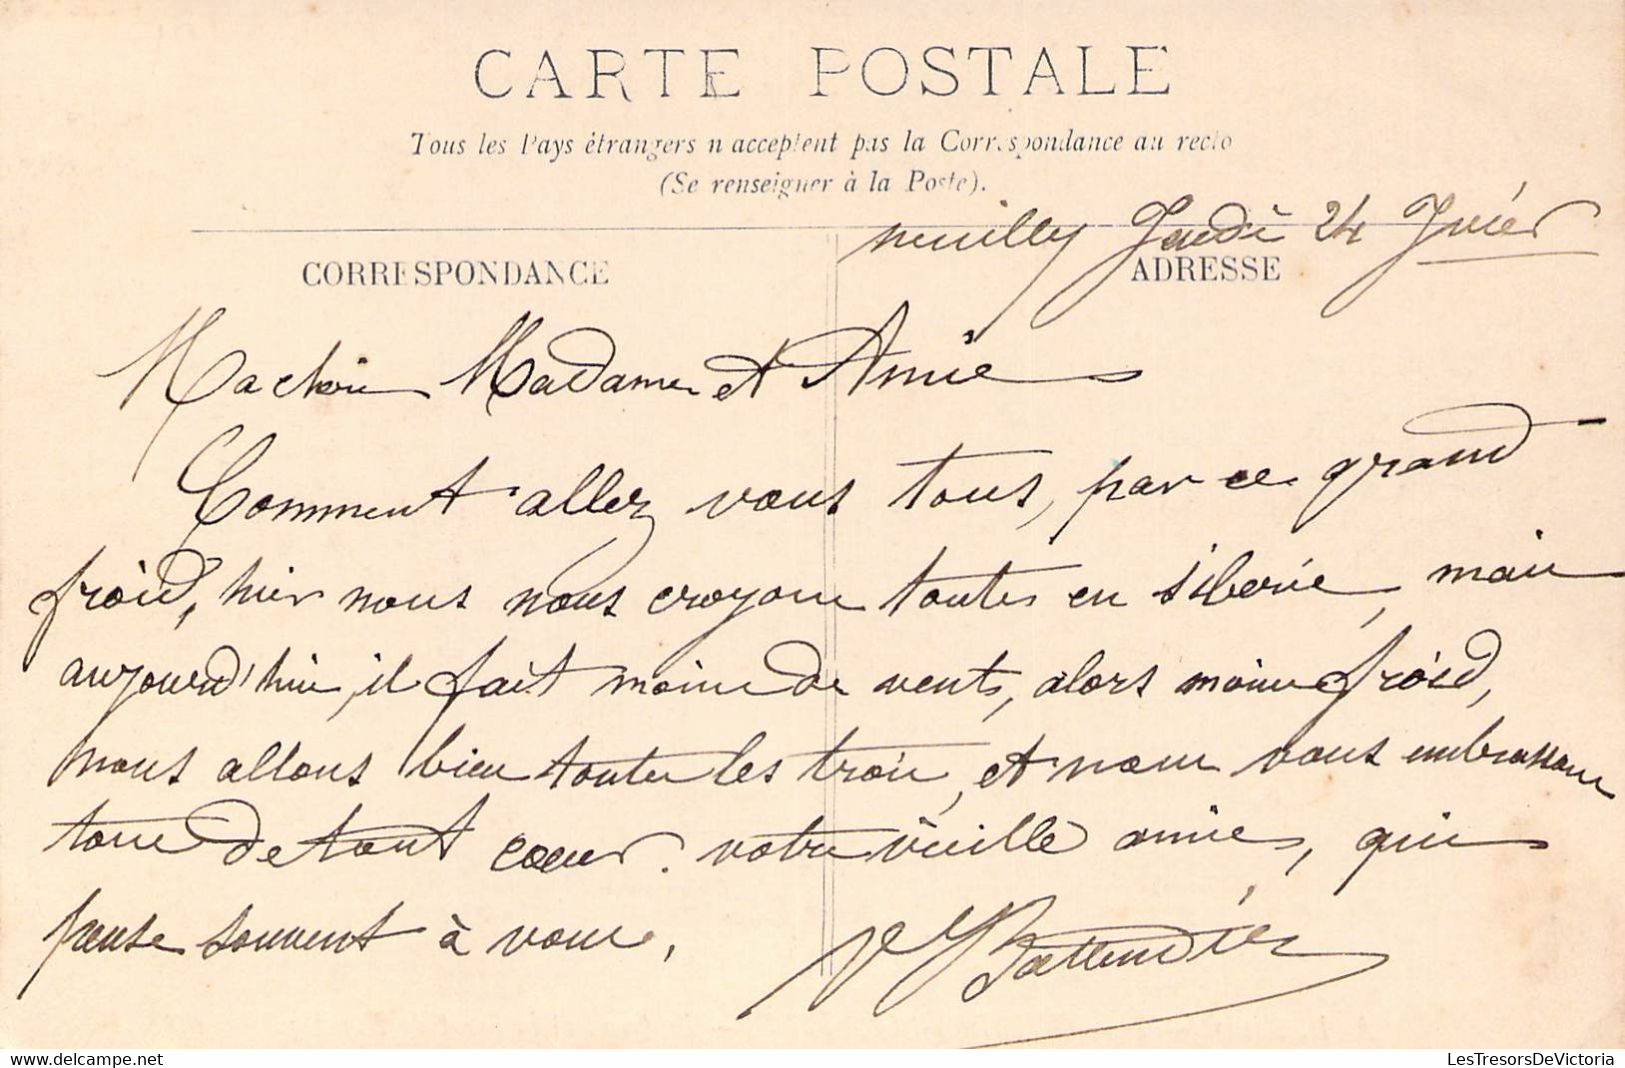 CARTE POSTALE
Tous les Pays étrangers n'acceptent pas la Correspondance au recto
(Se renseigner à la Poste).
neuilly Jeudi 24 Jvier
CORRESPONDANCE
ADRESSE
Ma chère Madame et Amie
Comment allez vous tous, par ce grand
froid, hier nous nous croyons toutes en Siberie, mais
aujourd'hui, il fait moins de vent, alors moins froid,
nous allons bien toutes les trois, et nous vous embrassons
tous de tout cœur. votre vieille amie, qui
pense souvent à vous,
LesTresorsDeVictoria